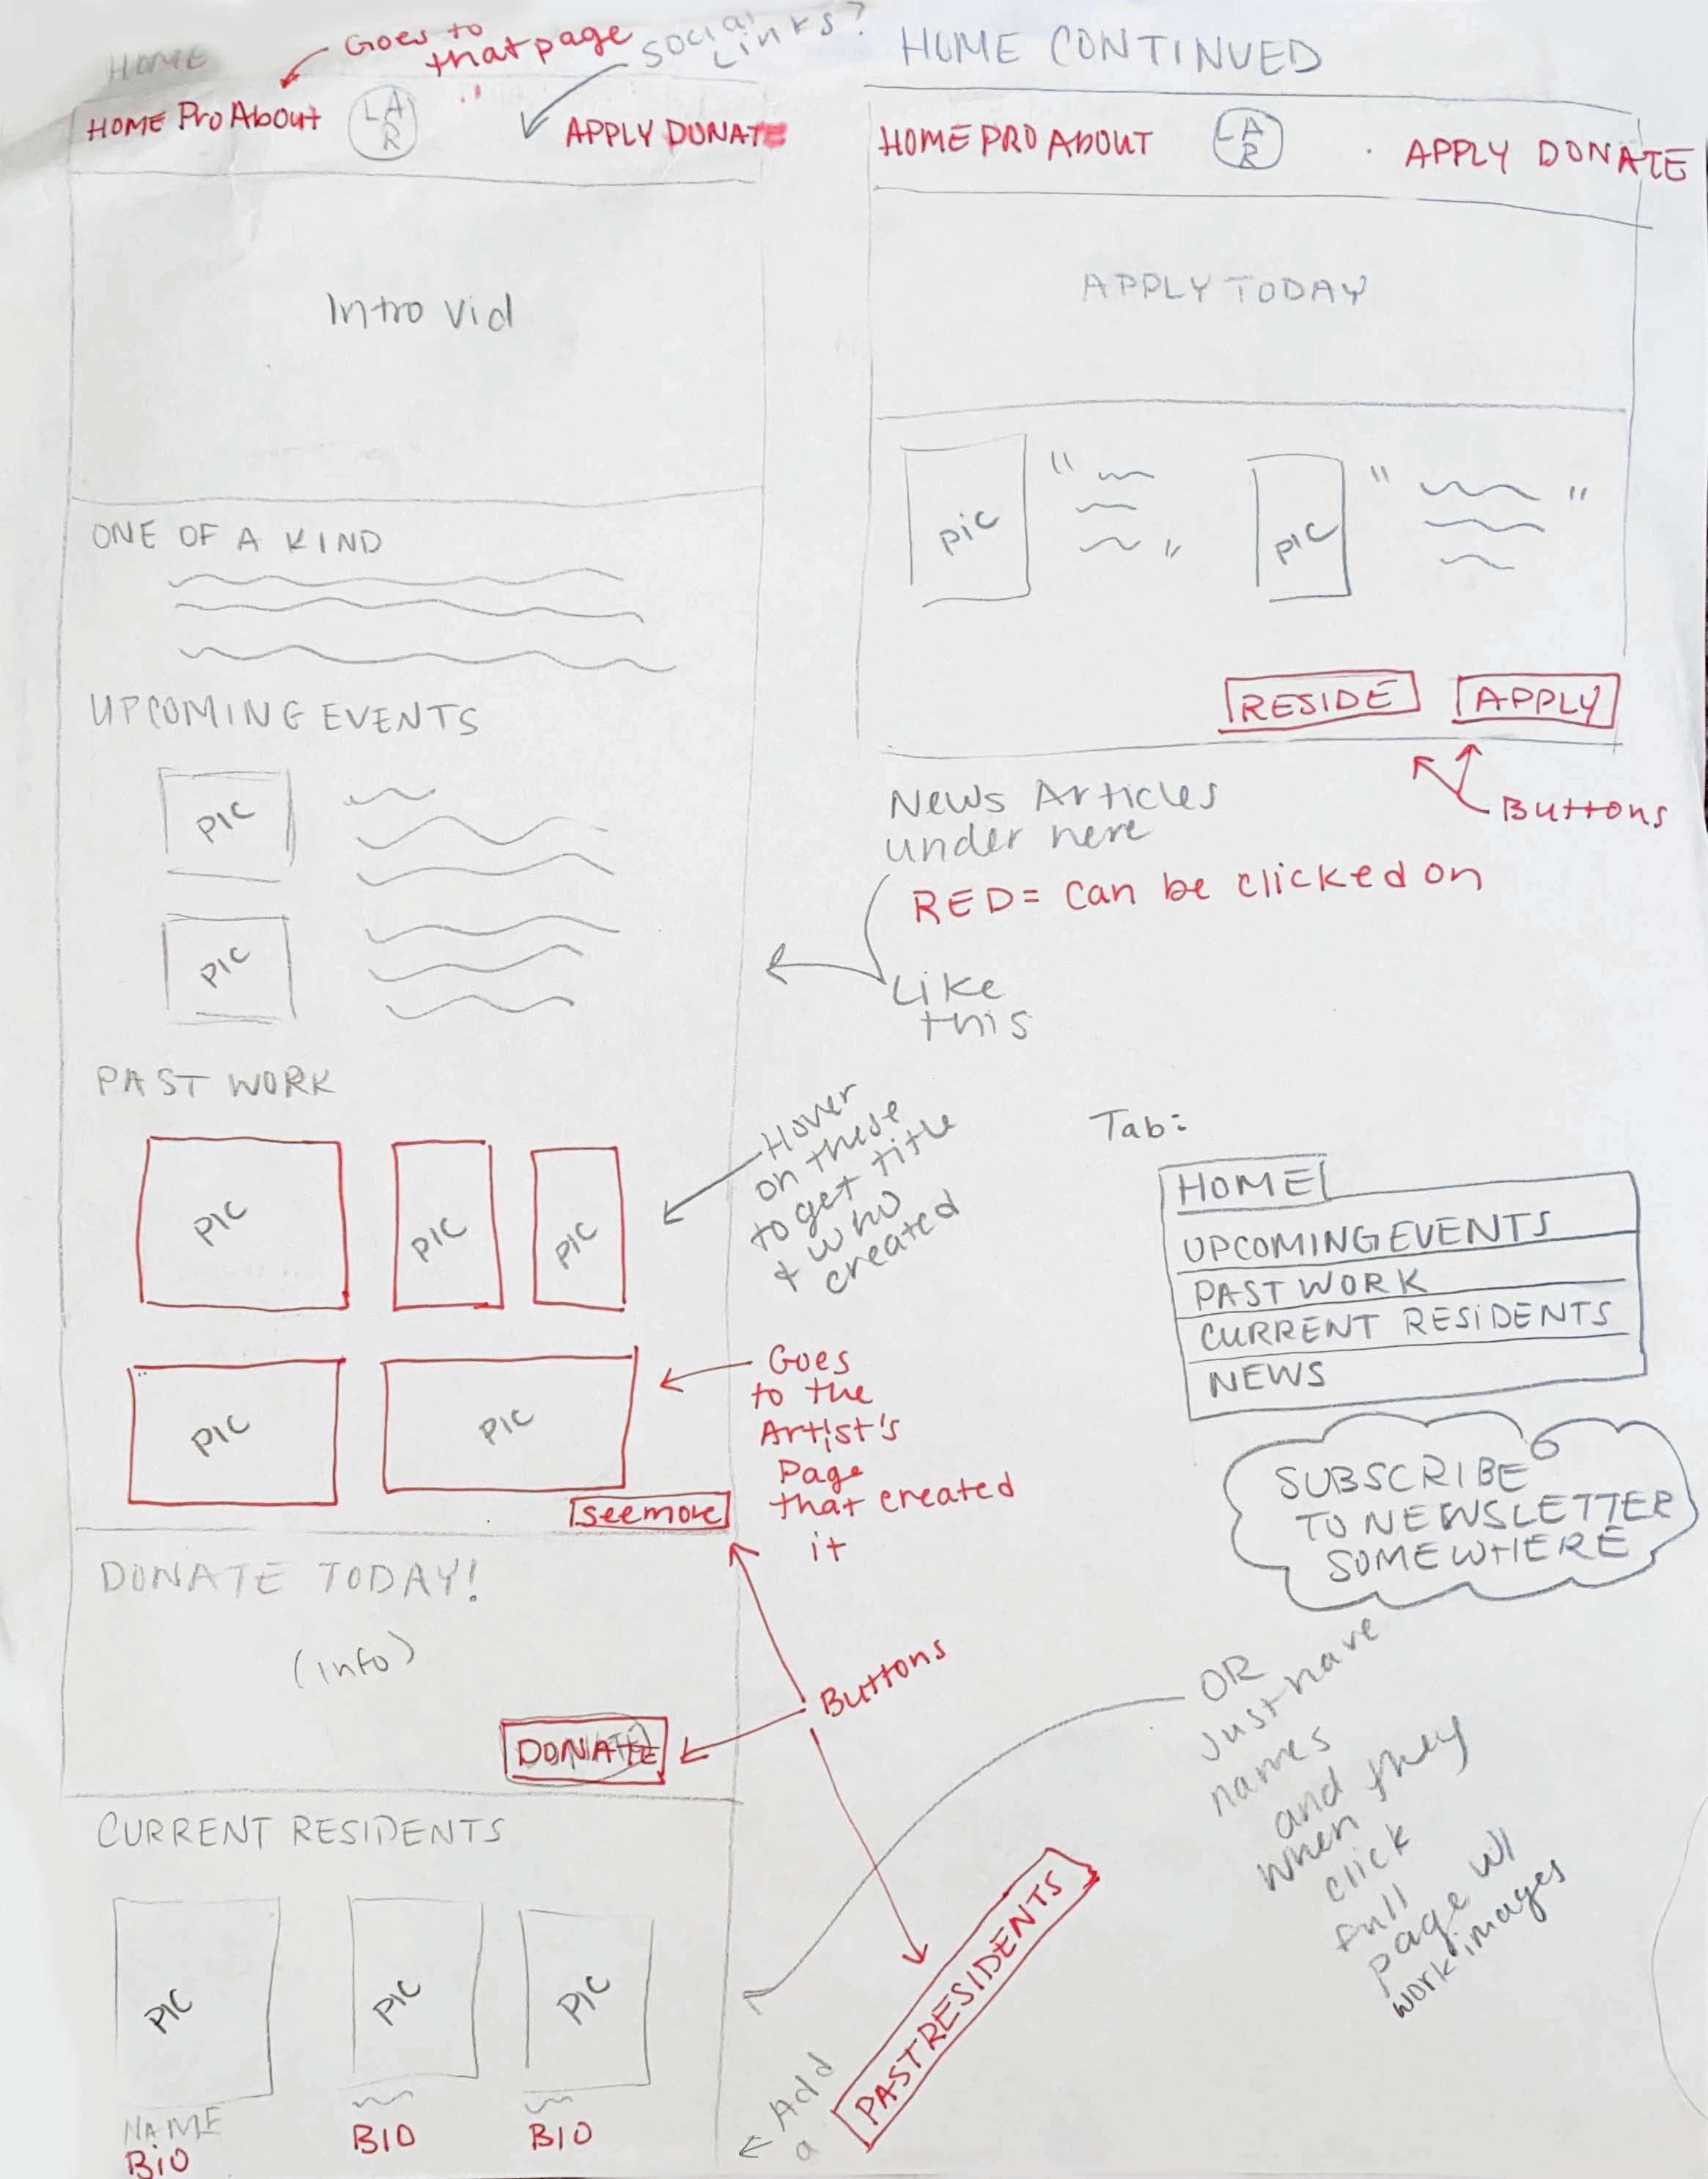 HOME
Goes to
that page
Social
Links?
HOME Pro About
LAR
APPLY DONATE
Intro Vid
ONE OF A KIND
UPCOMING EVENTS
PIC
PIC
PAST WORK
PIC
PIC
PIC
Hover
on these
to get title
& who
created
PIC
PIC
Goes
to the
Artist's
Page
that created
it
see more
DONATE TODAY!
(info)
DONATE
Buttons
CURRENT RESIDENTS
PIC
PIC
PIC
NAME
BiO
BIO
BIO
Add
a
PAST RESIDENTS
HOME CONTINUED
HOME PRO ABOUT
LAR
APPLY DONATE
APPLY TODAY
pic
" "
pic
" "
RESIDE
APPLY
Buttons
News Articles
under here
RED = Can be clicked on
Like
this
Tab:
HOME
UPCOMING EVENTS
PAST WORK
CURRENT RESIDENTS
NEWS
SUBSCRIBE
TO NEWSLETTER
SOMEWHERE
OR
Just have
names
and
when they
click
full
page w/
work images